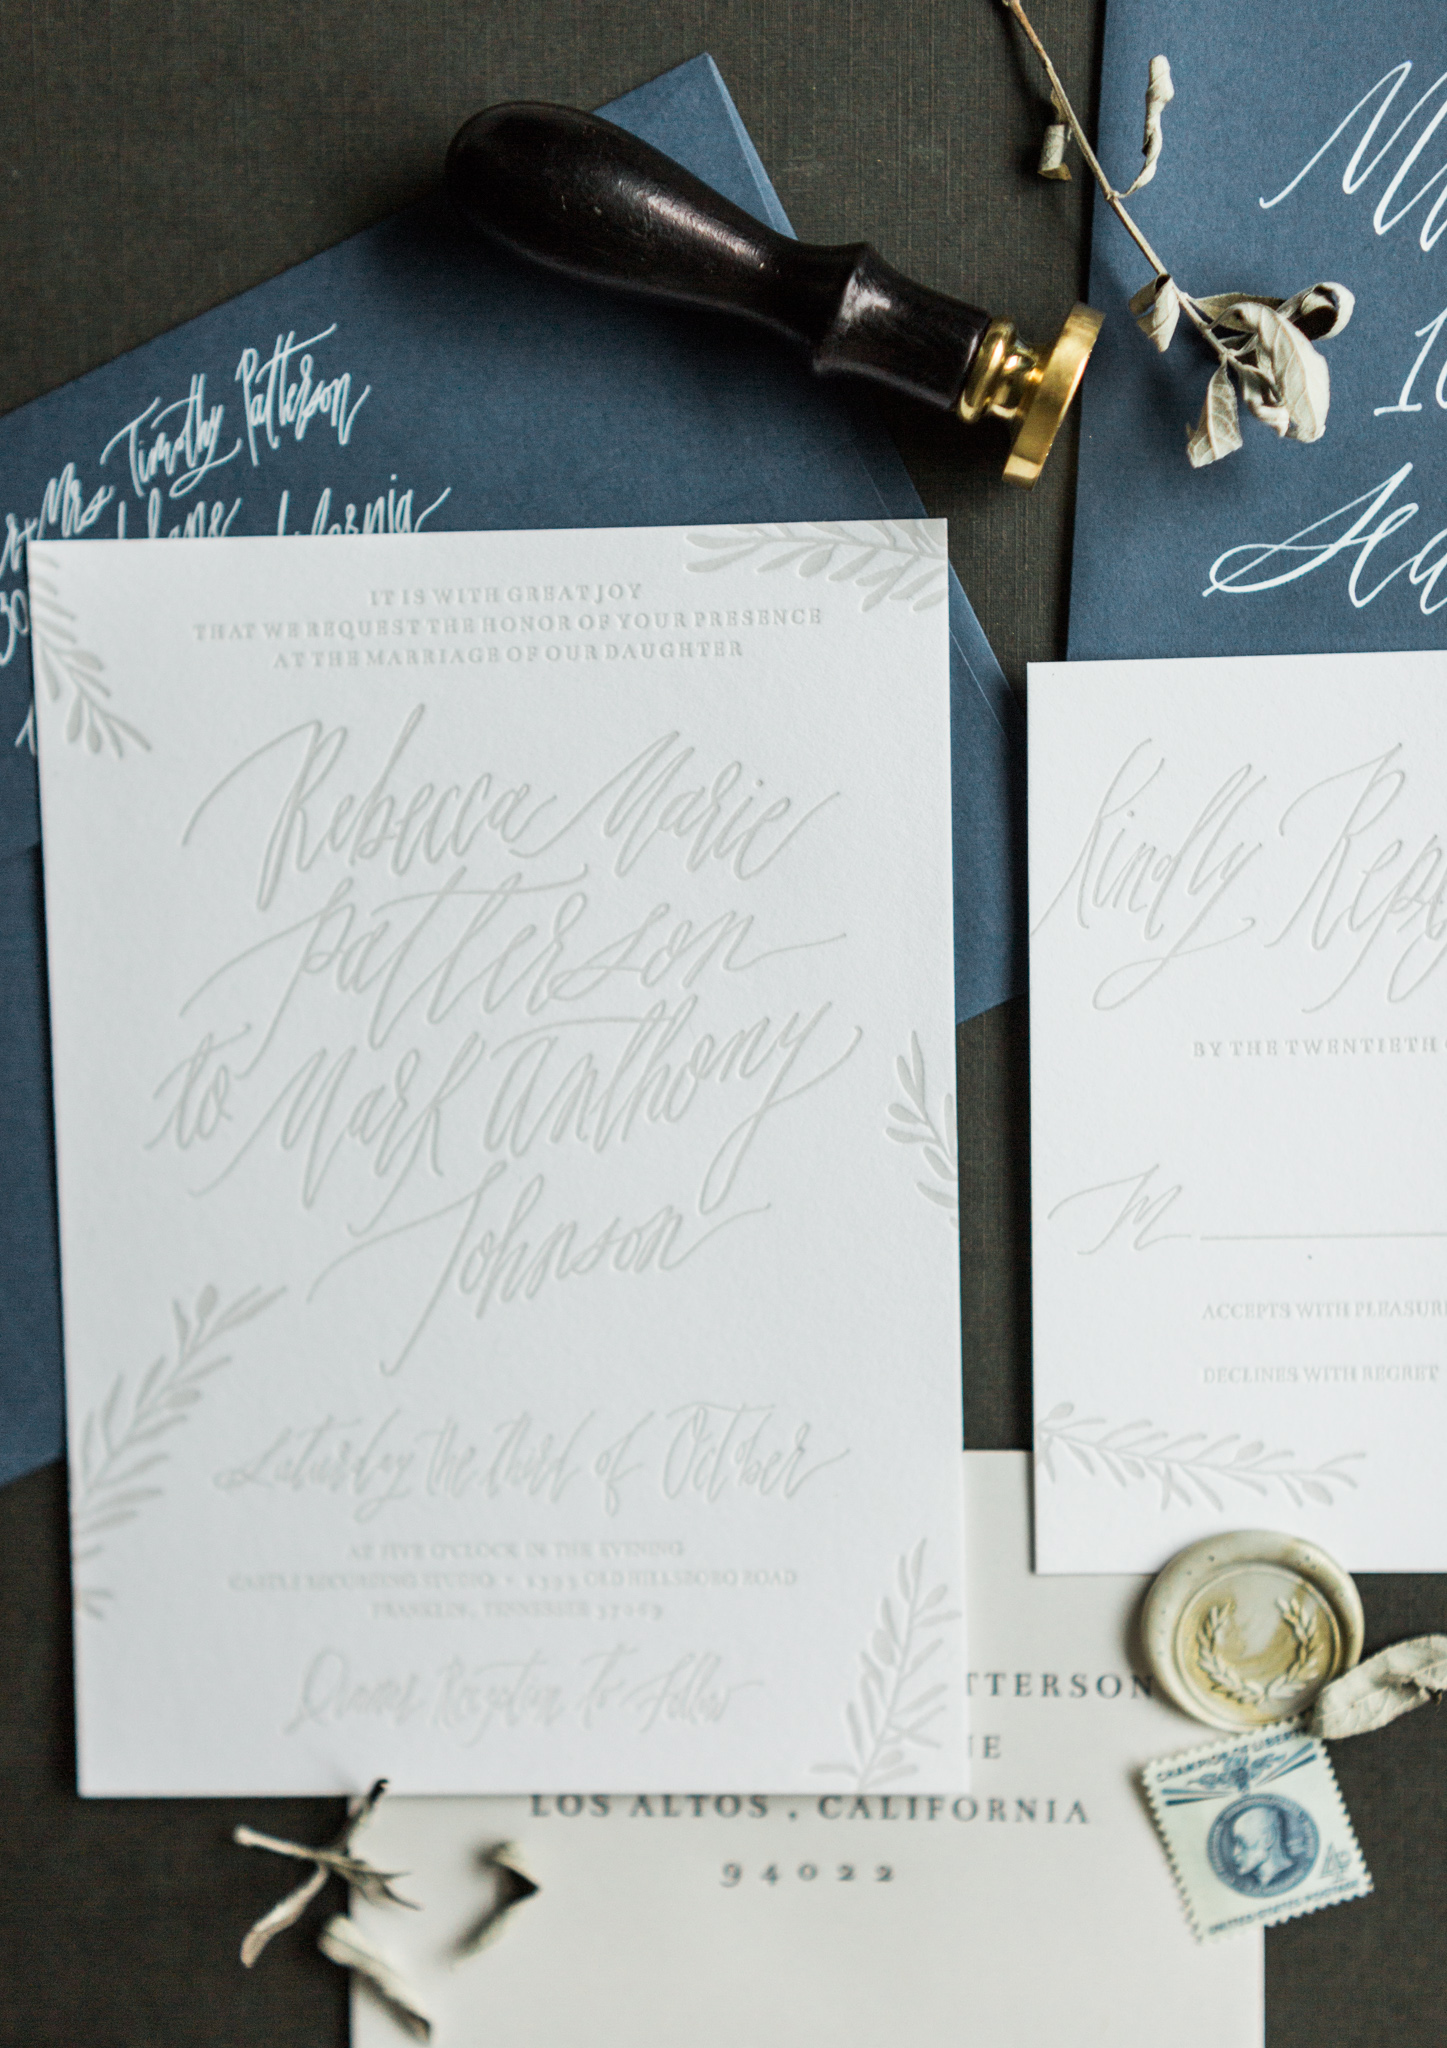 Mrs Timothy Patterson
30
IT IS WITH GREAT JOY
THAT WE REQUEST THE HONOR OF YOUR PRESENCE
AT THE MARRIAGE OF OUR DAUGHTER
Rebecca Marie
Patterson
to Mark Anthony
Johnson
Saturday the third of October
AT FIVE O'CLOCK IN THE EVENING
CASTLE RECORDING STUDIO • OLD HILLSBORO ROAD
FRANKLIN, TENNESSEE 37069
Dinner Reception to follow
Kindly
BY THE TWENTIETH
M
ACCEPTS WITH PLEASURE
DECLINES WITH REGRET
TTERSON
NE
LOS ALTOS , CALIFORNIA
94022
CHAMPION OF LIBERTY
4¢
UNITED STATES POSTAGE